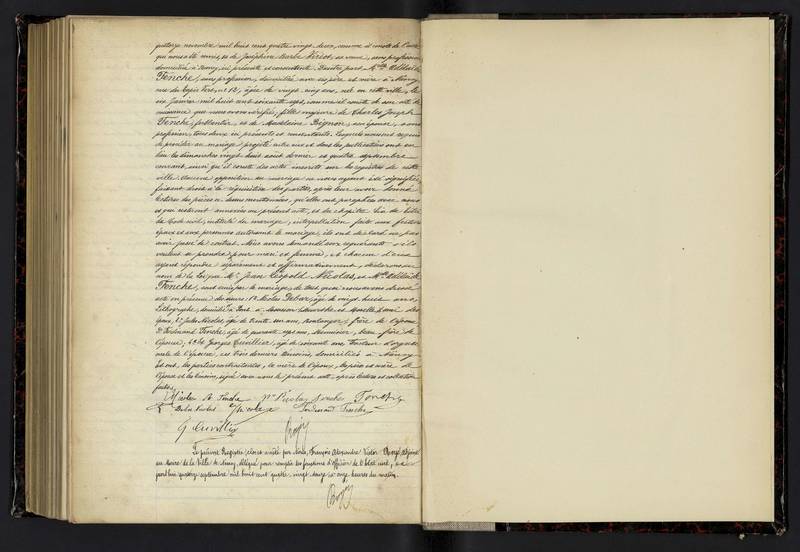 quatorze novembre mil huit cent quatre vingt deux, comme il conste de l'acte
qui nous a été remis, et de Joséphine Viriot, sa veuve, sans profession
domiciliée à Nancy, ici présente et consentante. D'autre part, Mlle
Fenche, sans profession, domiciliée avec ses père et mère à Nancy
rue du Tapis Vert, nº 13, âgée de vingt cinq ans, née en cette ville, le
six Janvier mil huit cent soixante sept, comme il conste de son acte de
naissance que nous avons vérifié, fille majeure de Charles Joseph
Fenche, et de Madeleine Bignon, son épouse, sans
profession, tous deux ici présents et consentants. Lesquels nous ont requis
de procéder au mariage projeté entre eux et dont les publications ont eu
lieu les dimanches vingt huit août dernier et quatre septembre
courant, ainsi qu'il conste des actes inscrits sur les registres de cette
ville. Aucune opposition au mariage ne nous ayant été signifiée,
faisant droit à la réquisition des parties, après leur avoir donné
lecture des pièces ci dessus mentionnées, qu'elles ont paraphées avec nous
et qui resteront annexées au présent acte, et du chapitre six du titre
du Code civil, intitulé du mariage, interpellation faite aux futurs
époux et aux personnes autorisant le mariage, ils ont déclaré ne pas
avoir passé de contrat. Nous avons demandé aux requérants s'ils
veulent se prendre pour mari et femme, et chacun d'eux
ayant répondu séparément et affirmativement, déclarons au
nom de la Loi que Mr Jean Léopold Nicolas, et Mlle
Fenche, sont unis par le mariage, de tout quoi nous avons dressé
acte en présence de Nicolas Debar, âgé de vingt huit ans,
Lithographe, domicilié à Pont à Mousson, Meurthe et Moselle, ami des
époux, 2º Jules Nicolas, âgé de trente un ans, boulanger, frère de l'époux
3º Ferdinand Fenche, âgé de quarante sept ans, Menuisier, beau frère de
l'épouse, 4º Georges Cuvillier, âgé de soixante ans,
oncle de l'épouse, ces trois derniers témoins, domiciliés à Nancy.
Et ont, les parties contractantes, la mère de l'époux, les père et mère de
l'épouse et les témoins, signé avec nous le présent acte, après lecture et collation
faites.
Fenche Nicolas Fenche
Nicolas Ferdinand Fenche
G Cuvillier
Le présent Registre, clos et arrêté par Nous, François Alexandre Victor adjoint
au Maire de la Ville de Nancy, délégué pour remplir les fonctions d'Officier de l'État civil,
jourd'hui quatorze septembre mil huit cent quatre vingt douze à onze heures du matin.